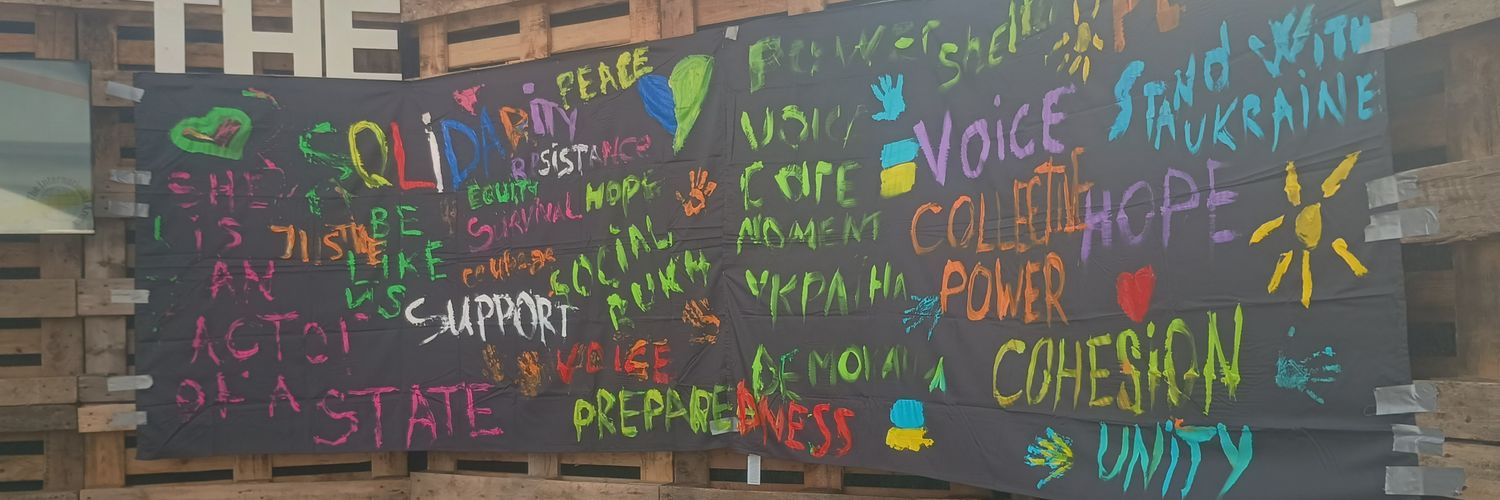 THE
SOLIDARITY
PEACE
RESISTANCE
EQUITY
HOPE
SURVIVAL
SHE
IS
AN
ACTOR
OF A
STATE
JUSTICE
BE
LIKE
US
courage
SOCIAL
RUKH
SUPPORT
VOICE
PREPAREDNESS
POWER shell
VOICE
CORE
MOMENT
УКРАЇНА
VOICE
STAND WITH
UKRAINE
COLLECTIVE
POWER
HOPE
COHESION
UNITY